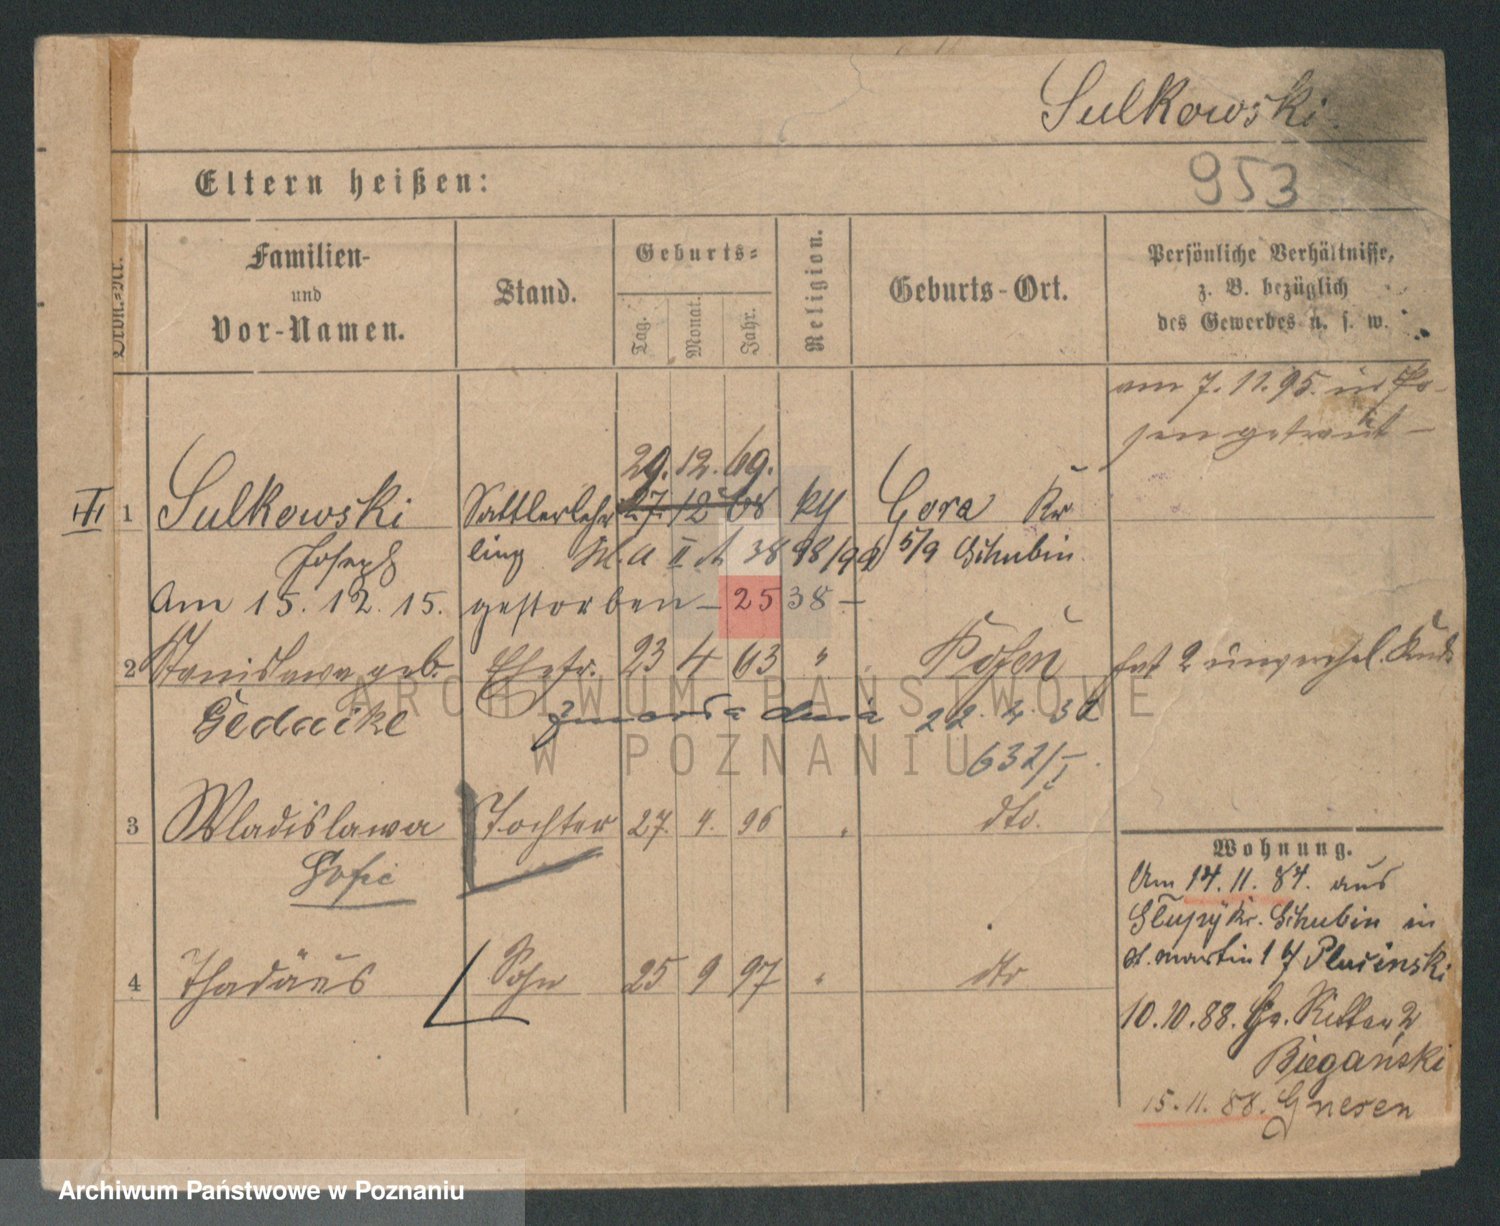 Sulkowski.
953
Eltern heißen:
Ordn.-Nr.
Familien-
und
Vor-Namen.
Stand.
Geburts-
Tag.
Monat.
Jahr.
Religion.
Geburts-Ort.
Persönliche Verhältnisse,
z. B. bezüglich
des Gewerbes u. s. w.
am 7.11.95. in Po-
sen getraut —
29. 12. 69.
III 1 Sulkowski Sattlerlehr 27. 12 68 kth Gora Kr
Joseph ling M.A II A 38 98/99 5/9 Schubin.
Am 15. 12. 15. gestorben — 2538 —
2 Stanislawa geb. Ehefr. 23 4 63 " Posen hat 2 unverehel. Kinder
Gedaike zmarła dnia 22. 4. 32
632/I.
3 Wladislawa Tochter 27. 4. 96 " dto.
Sofie
4 Thadäus Sohn 25 9 97 " dto
Wohnung.
Am 14. 11. 84. aus
Slupy Kr. Schubin in
St. Martin 17 Plucinski
10.10.88. Gr. Ritter 2
Biegański
15.11.88. Gnesen
ARCHIWUM PAŃSTWOWE
W POZNANIU
Archiwum Państwowe w Poznaniu